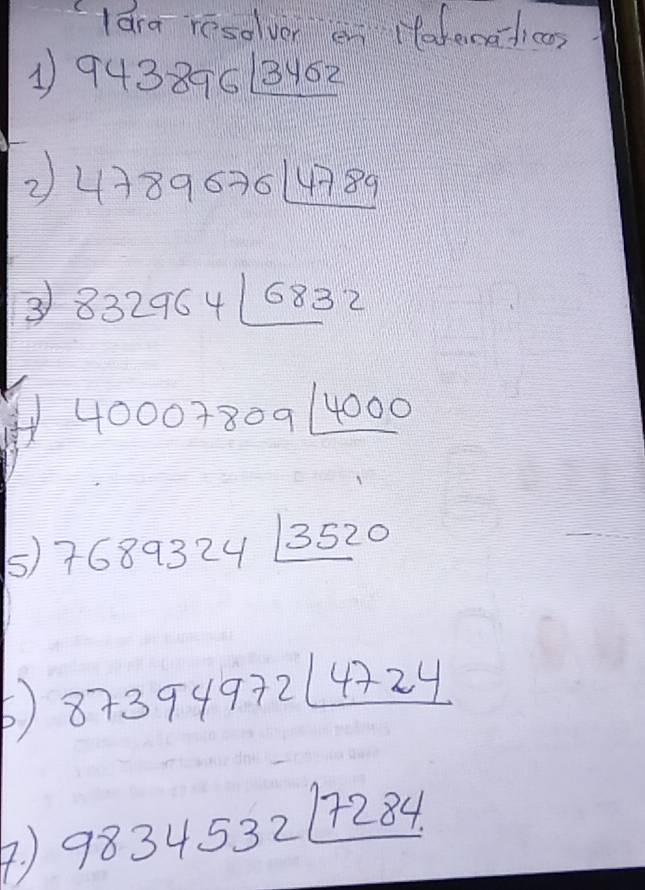 Para resolver en Matemáticas
1) 943896 | 3462
2) 4789676 | 4789
3) 832964 | 6832
4) 40007809 | 4000
5) 7689324 | 3520
6) 87394972 | 4724
7.) 9834532 | 7284.